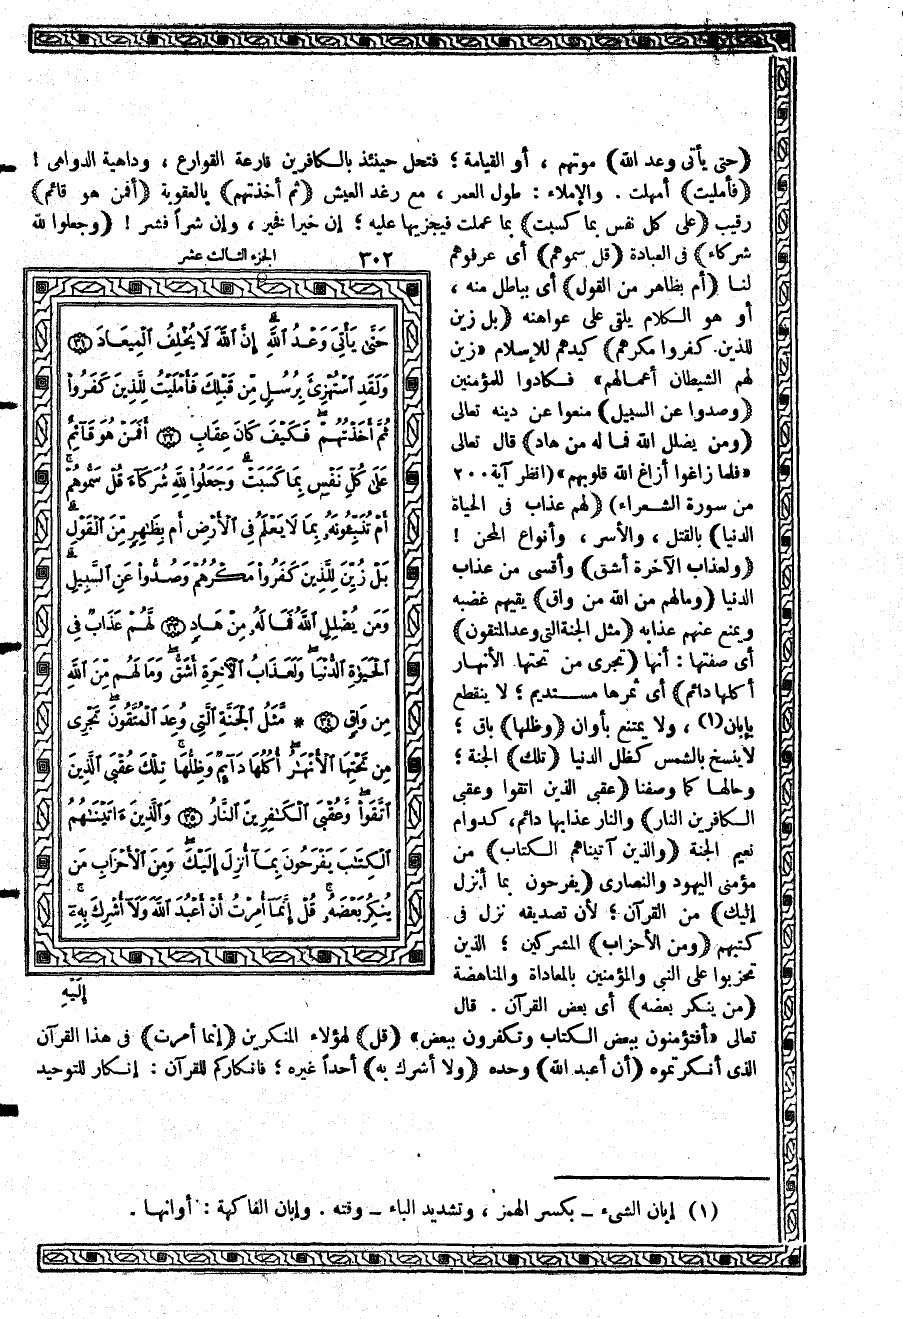 (حتى يأتى وعد الله) موتهم ، أو القيامة ؛ فتحل حينئذ بالكافرين قارعة القوارع ، وداهية الدواهى !
(فأمليت) أمهلت . والإملاء : طول العمر ، مع رغد العيش (ثم أخذتهم) بالعقوبة (أفمن هو قائم)
رقيب (على كل نفس بما كسبت) بما عملت فيجزيها عليه ؛ إن خيرا فخير ، وإن شراً فشر ! (وجعلوا لله
شركاء) فى العبادة (قل سموهم) أى عرفوهم
لنا (أم بظاهر من القول) أى بباطل منه ،
أو هو الكلام يلقى على عواهنه (بل زين
للذين كفروا مكرهم) كيدهم للإسلام «زين
لهم الشيطان أعمالهم» فكادوا للمؤمنين
(وصدوا عن السبيل) منعوا عن دينه تعالى
(ومن يضلل الله فما له من هاد) قال تعالى
«فلما زاغوا أزاغ الله قلوبهم» (انظر آية ٢٠٠
من سورة الشعراء) (لهم عذاب فى الحياة
الدنيا) بالقتل ، والأسر ، وأنواع المحن !
(ولعذاب الآخرة أشق) وأقسى من عذاب
الدنيا (ومالهم من الله من واق) يقيهم غضبه
ويمنع عنهم عذابه (مثل الجنة التى وعد المتقون)
أى صفتها : أنها (تجرى من تحتها الأنهار
أكلها دائم) أى ثمرها مستديم ؛ لا ينقطع
بإبان(١) ، ولا يمتنع بأوان (وظلها) باق ؛
لا ينسخ بالشمس كظل الدنيا (تلك) الجنة ؛
وحالها كما وصفنا (عقبى الذين اتقوا وعقبى
الكافرين النار) والنار عذابها دائم ، كدوام
نعيم الجنة (والذين آتيناهم الكتاب) من
مؤمنى اليهود والنصارى (يفرحون بما أنزل
إليك) من القرآن ؛ لأن تصديقه نزل فى
كتبهم (ومن الأحزاب) المشركين ؛ الذين
تحزبوا على النبى والمؤمنين بالمعاداة والمناهضة
(من ينكر بعضه) أى بعض القرآن . قال
تعالى «أفتؤمنون ببعض الكتاب وتكفرون ببعض» (قل) لهؤلاء المنكرين (إنما أمرت) فى هذا القرآن
الذى أنكرتموه (أن أعبد الله) وحده (ولا أشرك به) أحداً غيره ؛ فانكاركم للقرآن : إنكار للتوحيد
٣٠٢ الجزء الثالث عشر
حَتَّىٰ يَأْتِيَ وَعْدُ ٱللَّهِ ۚ إِنَّ ٱللَّهَ لَا يُخْلِفُ ٱلْمِيعَادَ ﴿٣١﴾
وَلَقَدِ ٱسْتُهْزِئَ بِرُسُلٍ مِّن قَبْلِكَ فَأَمْلَيْتُ لِلَّذِينَ كَفَرُوا۟
ثُمَّ أَخَذْتُهُمْ ۖ فَكَيْفَ كَانَ عِقَابِ ﴿٣٢﴾ أَفَمَنْ هُوَ قَآئِمٌ
عَلَىٰ كُلِّ نَفْسٍۭ بِمَا كَسَبَتْ ۗ وَجَعَلُوا۟ لِلَّهِ شُرَكَآءَ قُلْ سَمُّوهُمْ ۚ
أَمْ تُنَبِّـُٔونَهُۥ بِمَا لَا يَعْلَمُ فِى ٱلْأَرْضِ أَم بِظَـٰهِرٍ مِّنَ ٱلْقَوْلِ ۗ
بَلْ زُيِّنَ لِلَّذِينَ كَفَرُوا۟ مَكْرُهُمْ وَصُدُّوا۟ عَنِ ٱلسَّبِيلِ ۗ
وَمَن يُضْلِلِ ٱللَّهُ فَمَا لَهُۥ مِنْ هَادٍ ﴿٣٣﴾ لَّهُمْ عَذَابٌ فِى
ٱلْحَيَوٰةِ ٱلدُّنْيَا ۖ وَلَعَذَابُ ٱلْـَٔاخِرَةِ أَشَقُّ ۖ وَمَا لَهُم مِّنَ ٱللَّهِ
مِن وَاقٍ ﴿٣٤﴾ * مَّثَلُ ٱلْجَنَّةِ ٱلَّتِى وُعِدَ ٱلْمُتَّقُونَ ۖ تَجْرِى
مِن تَحْتِهَا ٱلْأَنْهَـٰرُ ۖ أُكُلُهَا دَآئِمٌ وَظِلُّهَا ۚ تِلْكَ عُقْبَى ٱلَّذِينَ
ٱتَّقَوا۟ ۖ وَّعُقْبَى ٱلْكَـٰفِرِينَ ٱلنَّارُ ﴿٣٥﴾ وَٱلَّذِينَ ءَاتَيْنَـٰهُمُ
ٱلْكِتَـٰبَ يَفْرَحُونَ بِمَآ أُنزِلَ إِلَيْكَ ۖ وَمِنَ ٱلْأَحْزَابِ مَن
يُنكِرُ بَعْضَهُۥ ۚ قُلْ إِنَّمَآ أُمِرْتُ أَنْ أَعْبُدَ ٱللَّهَ وَلَآ أُشْرِكَ بِهِۦٓ ۚ
إِلَيْهِ
(١) إبان الشىء – بكسر الهمز ، وتشديد الباء – وقته . وإبان الفاكهة : أوانها .